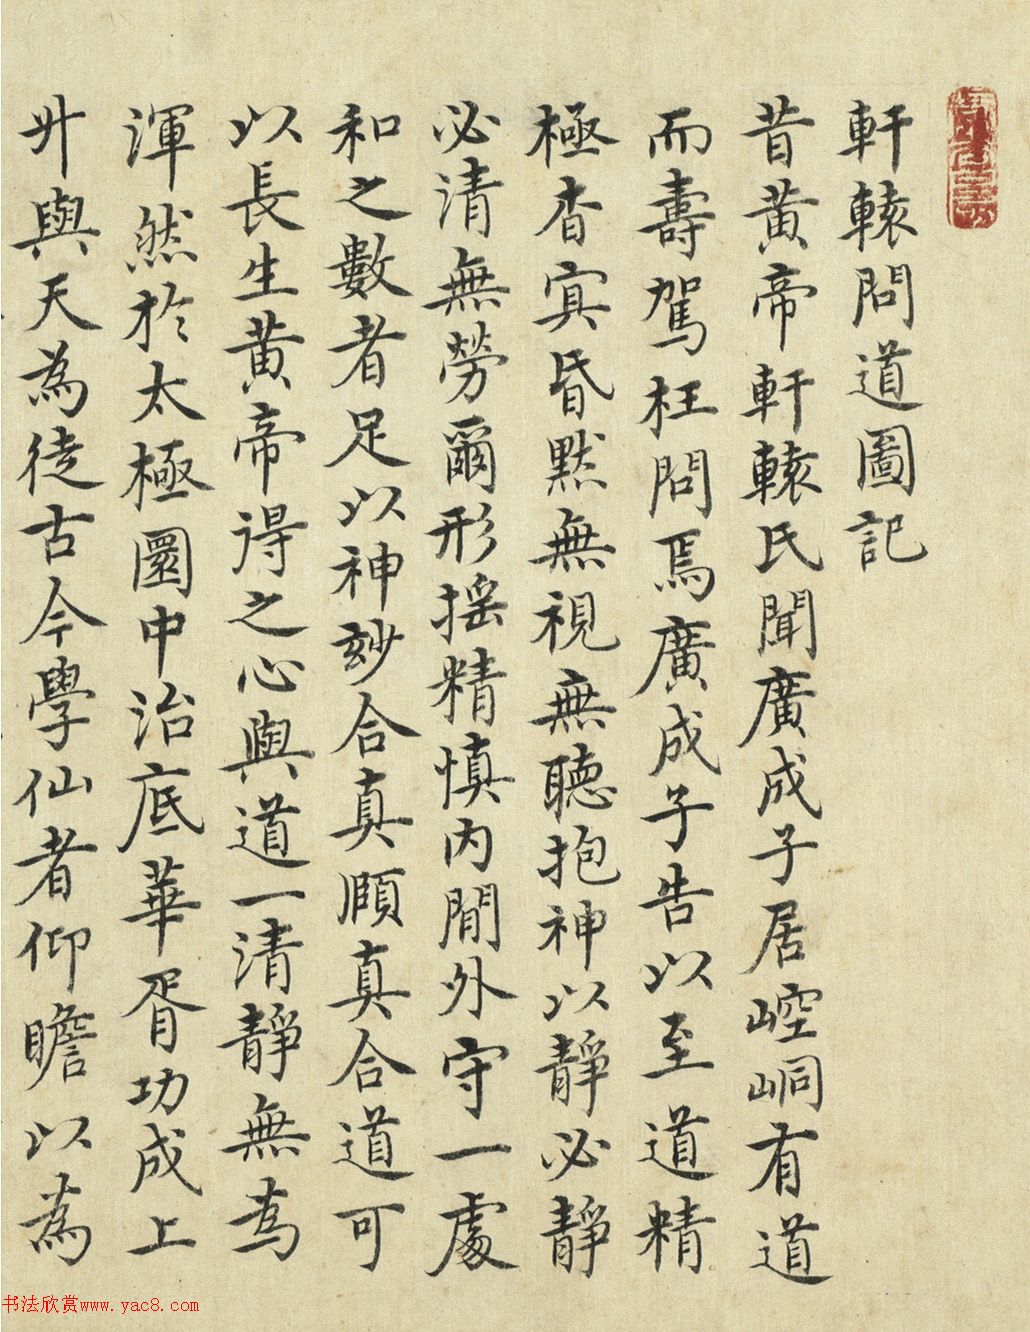 軒轅問道圖記
昔黃帝軒轅氏聞廣成子居崆峒有道
而壽駕枉問焉廣成子告以至道精
極杳冥昏默無視無聽抱神以靜必靜
必清無勞爾形搖精慎內閒外守一處
和之數者足以神妙合真頤真合道可
以長生黃帝得之心與道一清靜無為
渾然於太極圜中治底華胥功成上
升與天為徒古今學仙者仰瞻以為
书法欣赏www.yac8.com